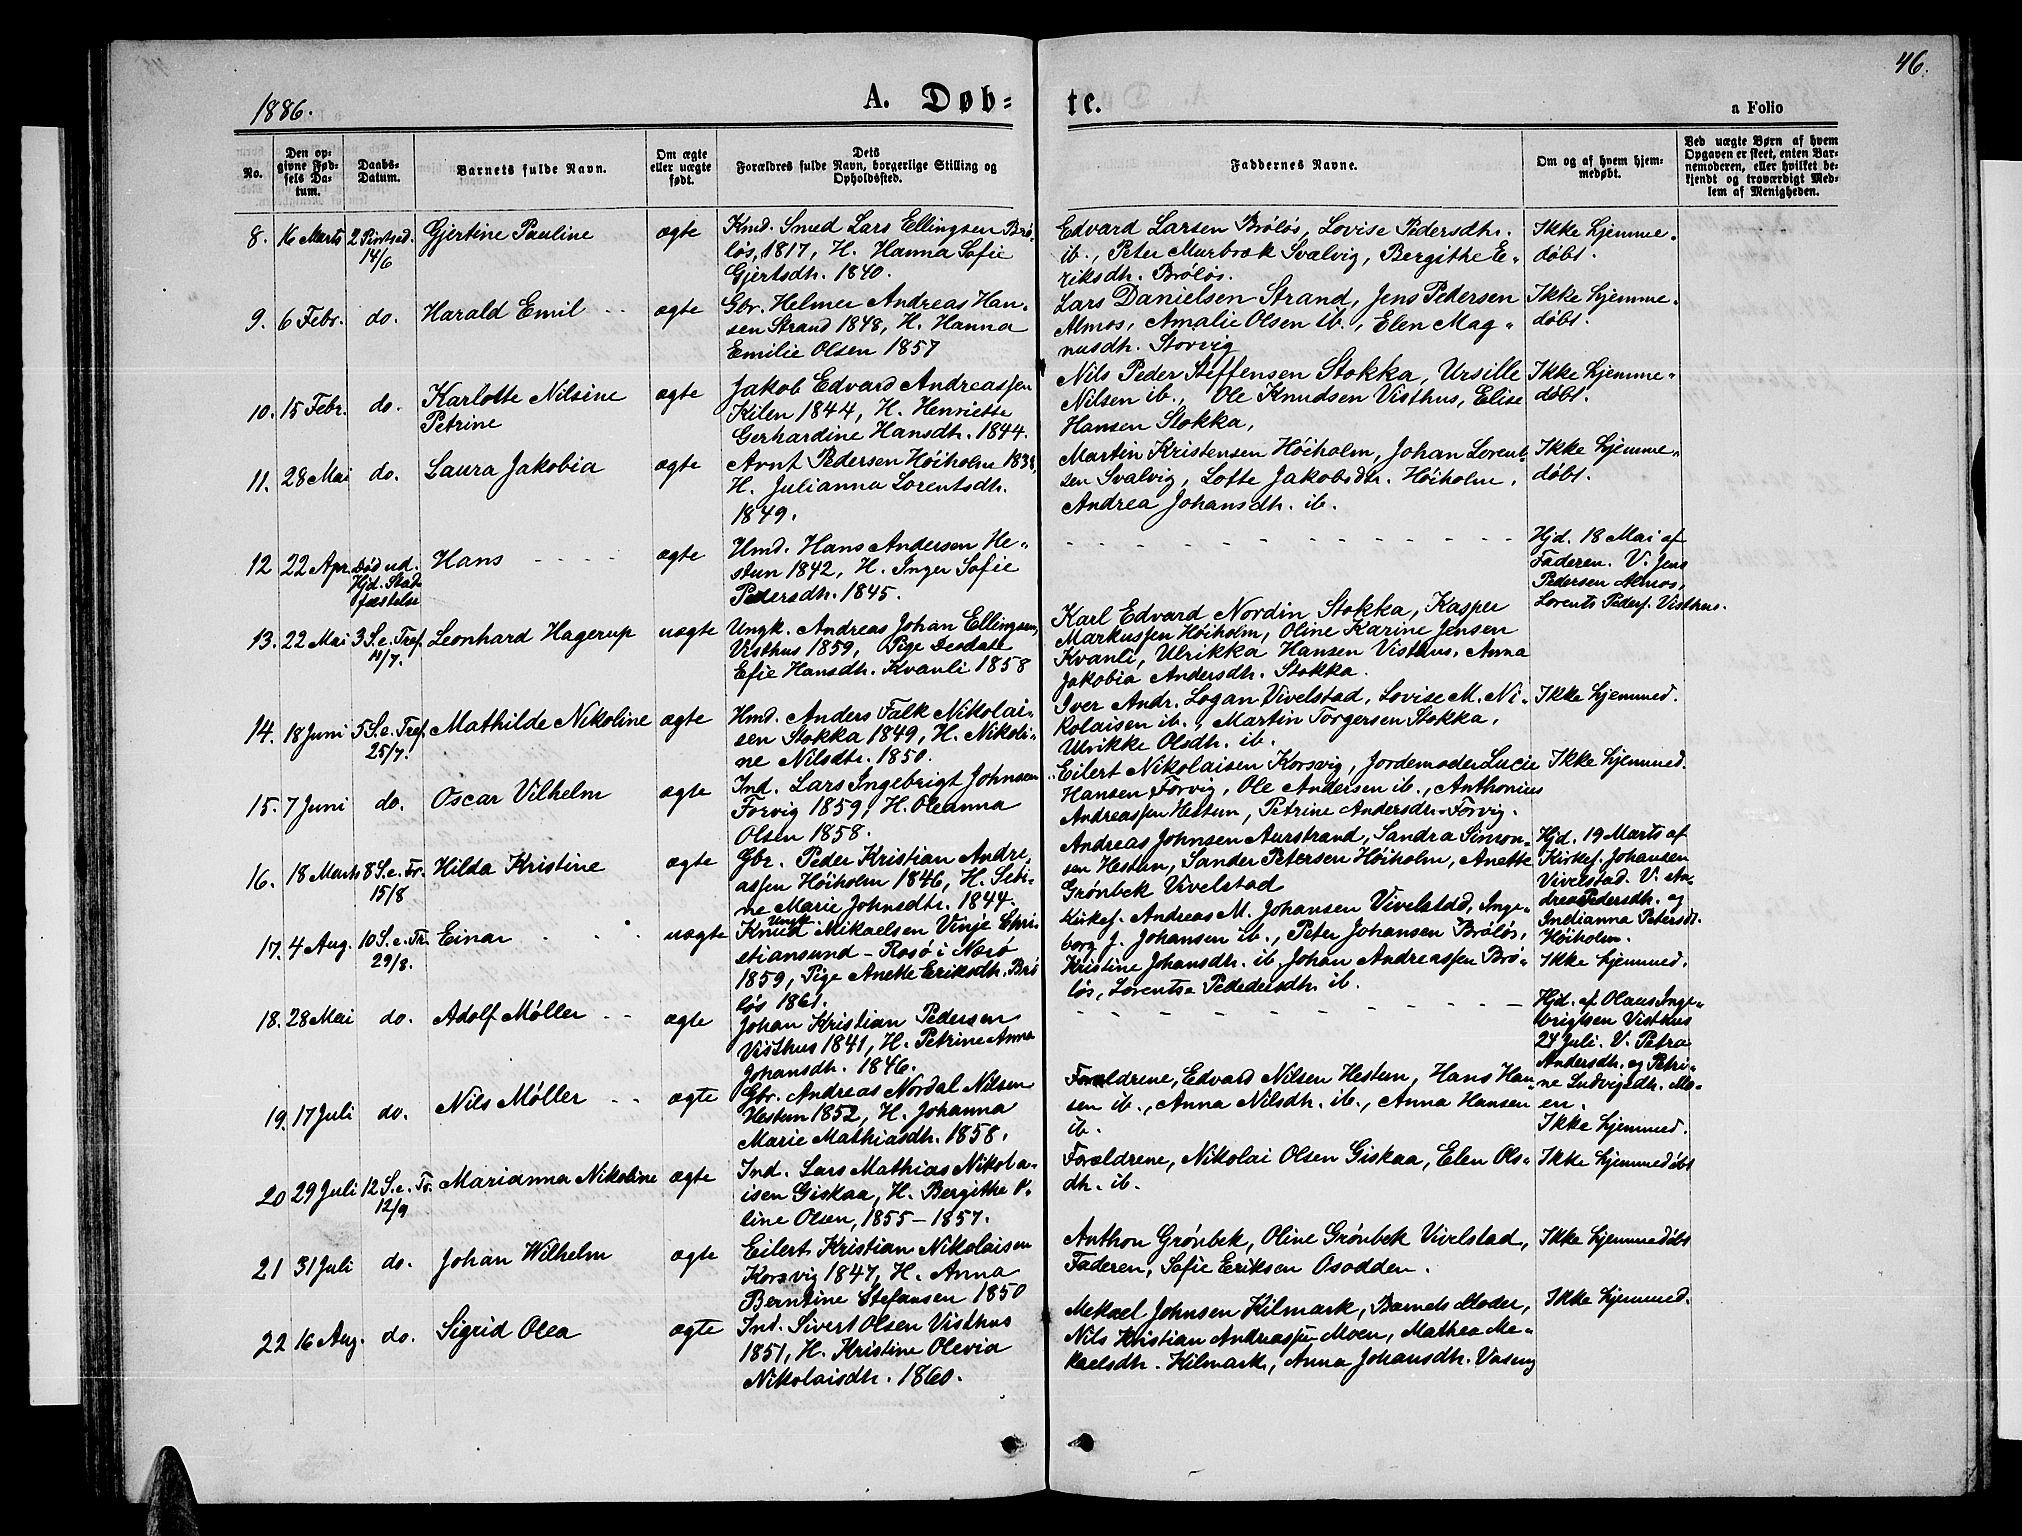 46.
1886.
A. Døb-
te.
a Folio
No.
Den op-
givne Fød-
sels Da-
tum.
Daabs-
Datum.
Barnets fulde Navn.
Om ægte
eller uægte
født.
Dets
Forældres fulde Navn, borgerlige Stilling og
Opholdssted.
Faddernes Navne.
Om og af hvem hjem-
medøbt.
Ved uægte Børn af hvem
Opgaven er skeet, enten Bar-
nemoderen, eller hvilket be-
kjendt og troværdigt Med-
lem af Menigheden.
8. 16 Marts 2 Pintsed. 14/6 Gjertine Pauline ægte
Kmd. Smed Lars Ellingsen Brø-
løs, 1817, H. Hanna Sofie
Gjertsdh. 1840.
Edvard Larsen Brøløs, Lovise Pedersdh.
ib., Peter Murbræk Svalvig, Bergithe E-
riksdh. Brøløs.
Ikke hjemme-
døbt.
9. 6 Febr. do. Harald Emil ægte
Gbr. Helmer Andreas Han-
sen Strand 1848, H. Hanna
Emilie Olsen 1857
Lars Danielsen Strand, Jens Pedersen
Almos, Amalie Olsen ib., Elen Mag-
nusdh. Storvig
Ikke hjemme-
døbt.
10. 15 Febr. do. Karlotte Nilsine
Petrine
ægte
Jakob Edvard Andreassen
Kilen 1844, H. Henriette
Gerhardine Hansdh. 1844.
Nils Peder Steffensen Stokka, Ursille
Nilsen ib., Ole Knudsen Visthus, Elise
Hansen Stokka,
Ikke hjemme-
døbt.
11. 28 Mai do. Laura Jakobia ægte
Arnt Pedersen Høiholm 1838,
H. Julianna Lorentsdh.
1849.
Martin Kristensen Høiholm, Johan Lorent-
sen Svalvig, Lotte Jakobsdtr. Høiholm,
Andrea Johansdh. ib.
Ikke hjemme-
døbt.
12 22 Apr. Død ud.
Hjd. Stad-
fæstelse
Hans ægte
Hmd. Hans Andersen He-
stun 1842, H. Inger Sofie
Pedersdh. 1845.
Hjd. 18 Mai af
Faderen. V. Jens
Pedersen Almos,
Lorents Peders. Visthus.
13. 22 Mai 3 S. e. Tref. 11/7. Leonhard Hagerup uægte
Ungk. Andreas Johan Ellingsen,
Visthus 1859, Pige Desdate
Efie Hansdh. Kvanli 1858
Karl Edvard Nordin Stokka, Kasper
Markussen Høiholm, Oline Karine Jensen
Kvanli, Ulrikka Hansen Visthus, Anna
Jakobia Andersdh. Stokka.
14. 18 Juni 5 S. e. Tref. 25/7. Mathilde Nikoline ægte
Hmd. Anders Falk Nikolai-
sen Stokka 1849, H. Nikoli-
ne Nilsdtr. 1850.
Iver Andr. Logan Vivelstad, Lovise M. Ni-
kolaisen ib., Martin Torgersen Stokka,
Ulrikke Olsdh. ib.
Ikke hjemmed.
15. 7 Juni do. Oscar Vilhelm ægte
Ind. Lars Ingebrigt Johnsen
Forvig 1859, H. Oleanna
Olsen 1858.
Eilert Nikolaisen Korsvig, Jordemoder Lucie
Hansen Forvig, Ole Andersen ib., Anthonius
Andreassen Hestun, Petrine Andersdh. Forvig.
Ikke hjemmed.
16. 18 Marts 8 S. e. Tr. 15/8 Hilda Kristine ægte
Gbr. Peder Kristian Andre-
assen Høiholm 1846, H. Seti-
ne Marie Johnsdtr. 1844.
Andreas Johnsen Aurstrand, Sandra Simon-
sen Hestun, Sander Petersen Høiholm, Anette
Grønbek Vivelstad
Hjd. 19 Marts af
Kirkes. Johansen
Vivelstad. V. An-
drea Pedersdh. og
Indianna Petersdt.
Høiholm.
17. 4 Aug. 10 S. e. Tr. 29/8. Einar uægte
Ungk.
Knud Mikaelsen Vinje Chri-
stiansund - Rosø i Nærø
1859, Pige Anette Eriksdh. Brø-
løs 1861.
Kirkes. Andreas M. Johansen Vivelstad, Inge-
borg J. Johansen ib., Peter Johansen Brøløs,
Kristine Johansdh. ib. Johan Andreassen Brø-
løs, Lorentse Pededersdh. ib.
Ikke hjemmed.
18. 28 Mai do. Adolf Møller ægte
Johan Kristian Pedersen
Visthus 1841, H. Petrine Anna
Johansdh. 1846.
Hjd. af Olaus Inge-
brigtsen Visthus
24 Juli. V. Petra
Andersdh. og Petri-
ne Ludvigsdh. Mo-
en.
19. 17 Juli do. Nils Møller ægte
Gbr. Andreas Nordal Nilsen
Hestun 1852, H. Johanna
Marie Mathiasdh. 1858.
Forældrene, Edvard Nilsen Hestun, Hans Han-
sen ib., Anna Nilsdh. ib., Anna Hansen
ib.
Ikke hjemmed.
20 29 Juli 12 S. e. Tr. 12/9 Marianna Nikoline ægte
Ind. Lars Mathias Nikola-
isen Giskaa, H. Bergithe O-
line Olsen, 1855 - 1857.
Forældrene, Nikolai Olsen Giskaa, Elen Ols-
dh. ib.
Ikke hjemmedøbt
21 31 Juli do. Johan Wilhelm ægte
Eilert Kristian Nikolaisen
Korsvig 1847, H. Anna
Berntine Stefansen 1850
Anthon Grønbek, Oline Grønbek Vivelstad,
Faderen, Sofie Eriksen Osodden.
Ikke hjemmedøbt
22 16 Aug. do. Sigrid Olea ægte
Ind. Sivert Olsen Visthus
1851, H. Kristine Olevia
Nikolaisdh. 1860.
Mekael Johnsen Kilmark, Barnets Moder,
Nils Kristian Andreassen Moen, Mathea Me-
kaelsdh. Kilmark, Anna Johansdh. Vaseng
Ikke hjemmed.